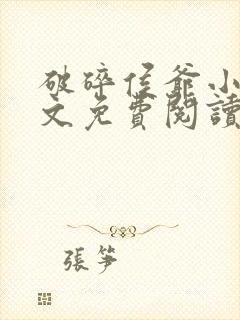 破碎侯爺小
文免費閱讀
張笋